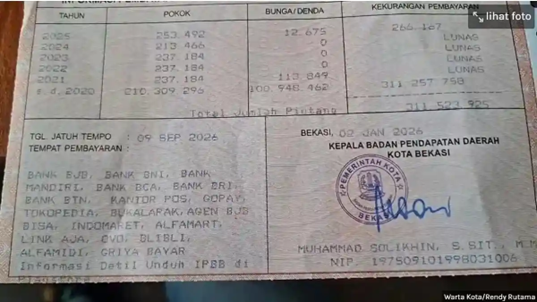 lihat foto
TAHUN POKOK BUNGA/DENDA KEKURANGAN PEMBAYARAN
2025 253.492 12.675 266.167
2024 213.466 0 LUNAS
2023 237.184 0 LUNAS
2022 237.184 0 LUNAS
2021 237.184 113.849 LUNAS
s.d. 2020 210.309.296 100.948.462 311.257.758
Total Jumlah Piutang 311.523.925
TGL. JATUH TEMPO : 09 SEP 2026
TEMPAT PEMBAYARAN :
BANK BJB, BANK BNI, BANK
MANDIRI, BANK BCA, BANK BRI,
BANK BTN, KANTOR POS, GOPAY,
TOKOPEDIA, BUKALAPAK, AGEN BJB
BISA, INDOMARET, ALFAMART,
LINK AJA, OVO, BLIBLI,
ALFAMIDI, GRIYA BAYAR
Informasi Detil Unduh IPBB di
BEKASI, 02 JAN 2026
KEPALA BADAN PENDAPATAN DAERAH
KOTA BEKASI
PEMERINTAH KOTA
BEKASI
MUHAMMAD SOLIKHIN, S.SIT., M.M
NIP. 197509101998031006
Warta Kota/Rendy Rutama